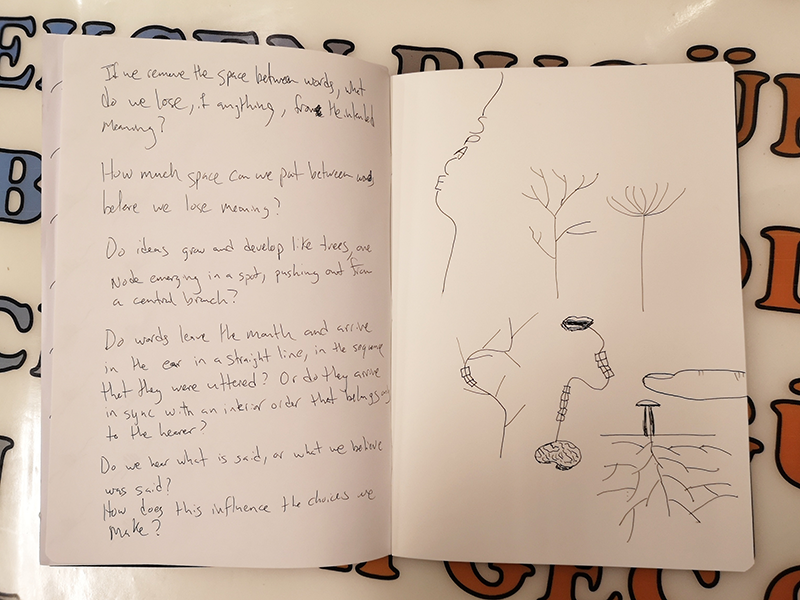 If we remove the space between words, what
do we lose, if anything, from the intended
meaning?
How much space can we put between words
before we lose meaning?
Do ideas grow and develop like trees, one
node emerging in a spot, pushing out from
a central branch?
Do words leave the mouth and arrive
in the ear in a straight line, in the sequence
that they were uttered? Or do they arrive
in sync with an interior order that belongs only
to the hearer?
Do we hear what is said, or what we believe
was said?
How does this influence the choices we
make?